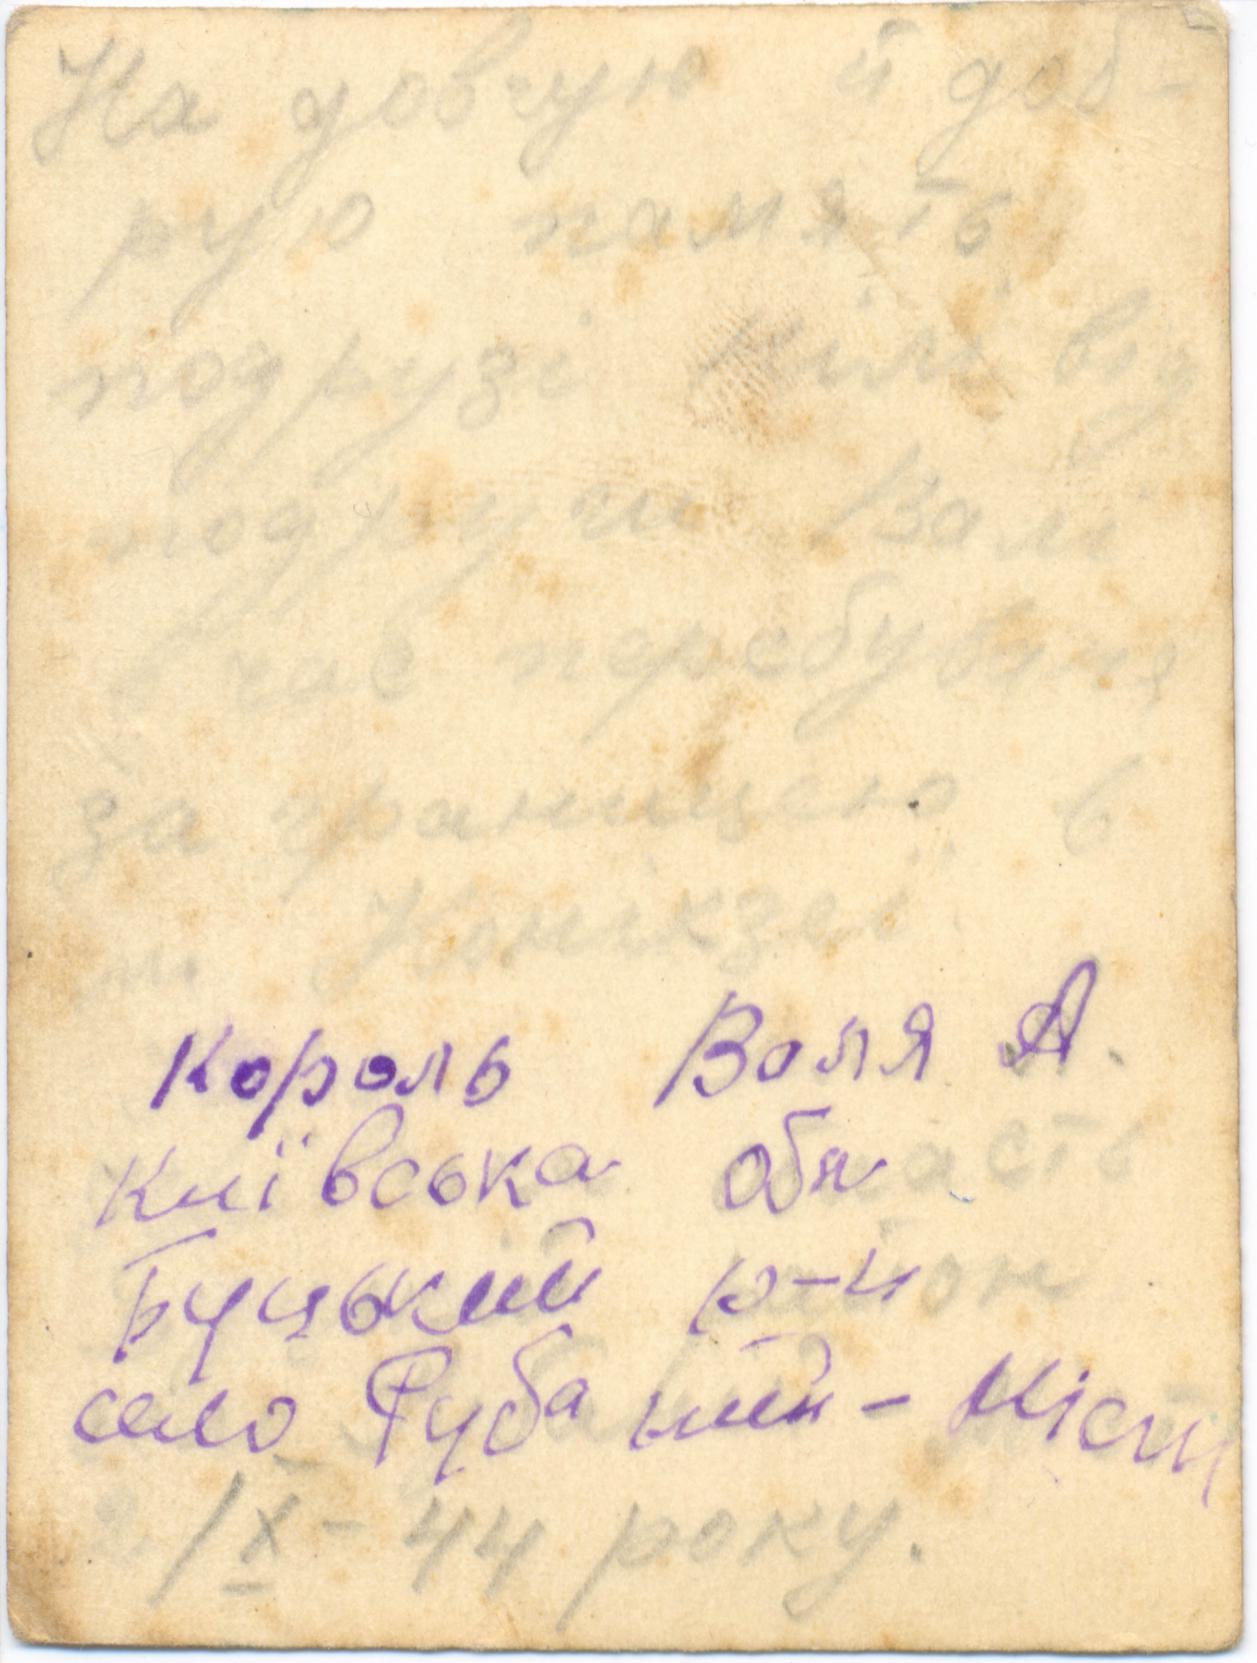 На довгую й доб-
рую память
подрузі від
подруги Валі
в час перебуваня
за границею в
м.
Король Валя А.
Київська обл
Буцький р-н
село Рубаний-Міст
2/IX-44 року.